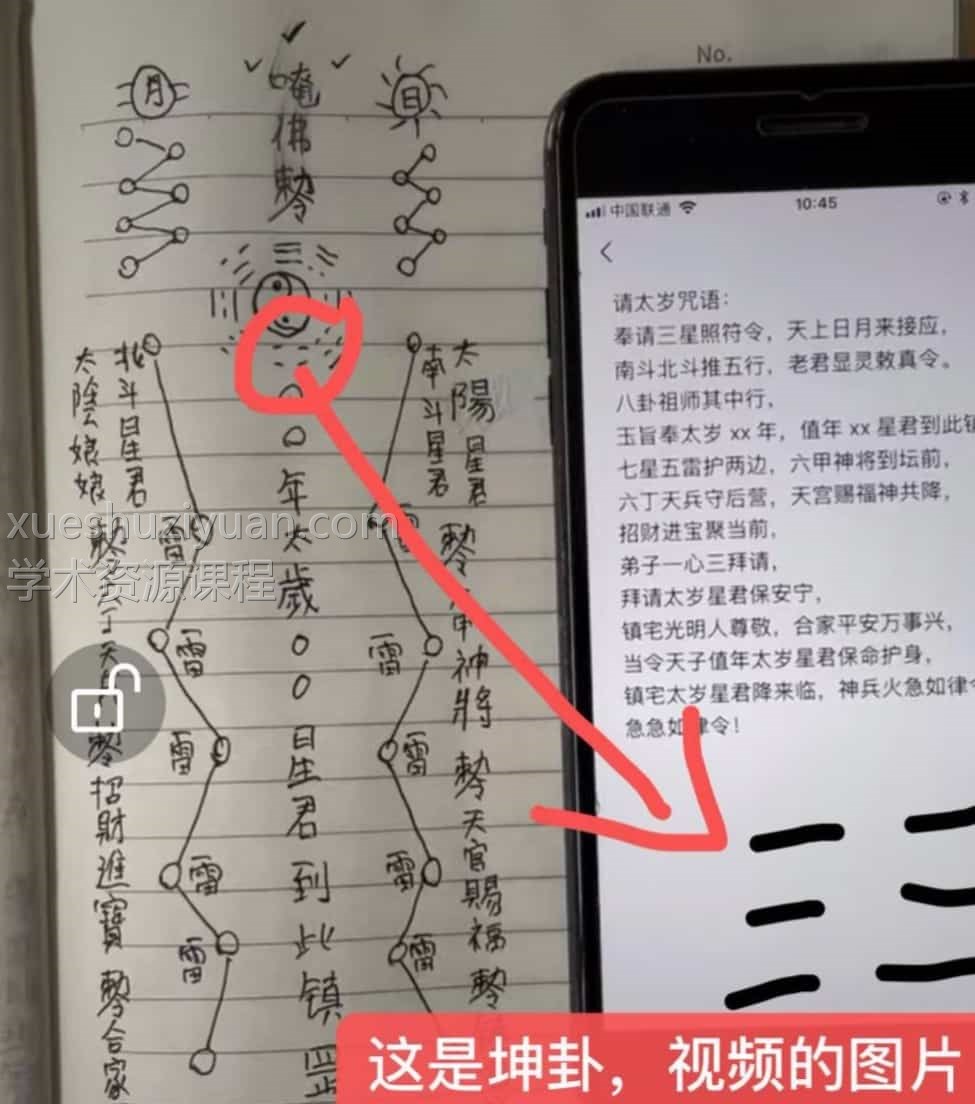 No.
月
唵佛勅
日
北斗星君
太陰娘娘
南斗星君
太陽星君
〇〇年太歲〇〇星君到此镇
雷
雷
雷
雷
雷
雷
雷
雷
雷
勅
招財進寶勅合家
勅
甲神將勅天官賜福勅
中国联通
10:45
请太岁咒语：
奉请三星照符令，天上日月来接应，
南斗北斗推五行，老君显灵敕真令。
八卦祖师其中行，
玉旨奉太岁 xx 年，值年 xx 星君到此镇
七星五雷护两边，六甲神将到坛前，
六丁天兵守后营，天官赐福神共降，
招财进宝聚当前，
弟子一心三拜请，
拜请太岁星君保安宁，
镇宅光明人尊敬，合家平安万事兴，
当令天子值年太岁星君保命护身，
镇宅太岁星君降来临，神兵火急如律令
急急如律令！
xueshuziyuan.com
学术资源课程
这是坤卦，视频的图片